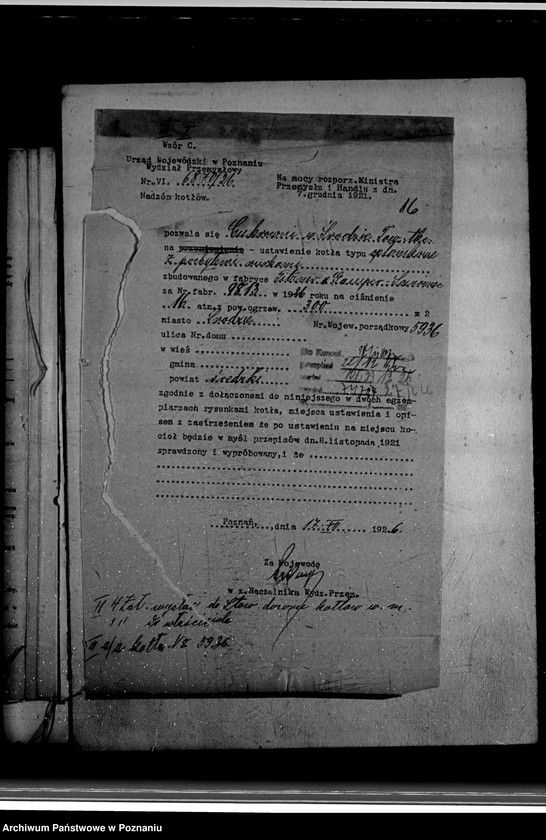 Wzór C.
Urząd Wojewódzki w Poznaniu
Wydział Przemysłowy
Nr.VI. 6877/26.
Nadzór kotłów.
Na mocy rozporz.Ministra
Przemysłu i Handlu z dn.
7.grudnia 1921.
16
pozwala się Cukrowni w Środzie Tow. Akc.
na przeniesienie - ustawienie kotła typu
z
zbudowanego w fabryce Gamper Sosnowiec
za Nr.fabr. 9813 w 1926 roku na ciśnienie
16 atm.z pow.ogrzew. 300 m 2
miasto Środzie Nr.Wojew.porządkowy 5936
ulica Nr.domu
w wieś
gmina
powiat Średzki
zgodnie z dołączonemi do niniejszego w dwóch egzem-
plarzach rysunkami kotła, miejsca ustawienia i opi-
sem z zastrzeżeniem że po ustawieniu na miejscu ko-
cioł będzie w myśl przepisów dn.8.listopada 1921
sprawdzony i wypróbowany,i że
Poznań, dnia 17.XII. 1926.
Za Wojewodę
w z.Naczelnika Wydz.Przem.
II 4 Zał. wysłać do Stow dozoru kotłów w. m.
" " do właściciela
III a/a kotła No 5936
Archiwum Państwowe w Poznaniu